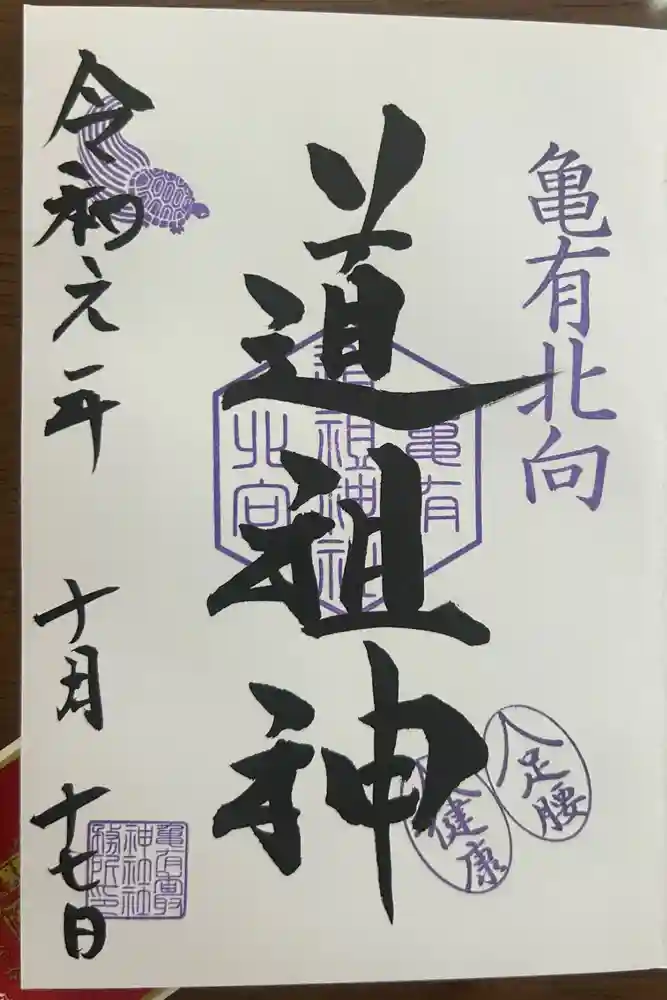 亀有北向
道祖神
亀有
道祖神社
北向
足腰
健康
令和元年
十月
十七日
亀有香取
神社社
務所印